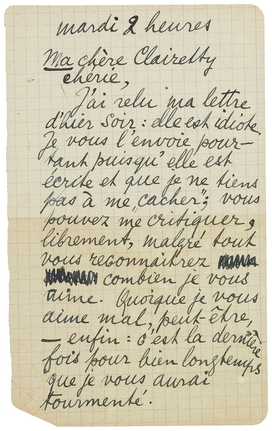 mardi 2 heures
Ma chère Clairetty
chérie,
J'ai relu ma lettre
d'hier soir : elle est idiote.
Je vous l'envoie pour-
tant puisqu'elle est
écrite et que je ne tiens
pas à me "cacher"; vous
pouvez me critiquer,
librement, malgré tout
vous reconnaitrez
combien je vous
aime. Quoique je vous
aime mal, peut-être,
— enfin : c'est la dernière
fois pour bien longtemps
que je vous aurai
tourmenté.